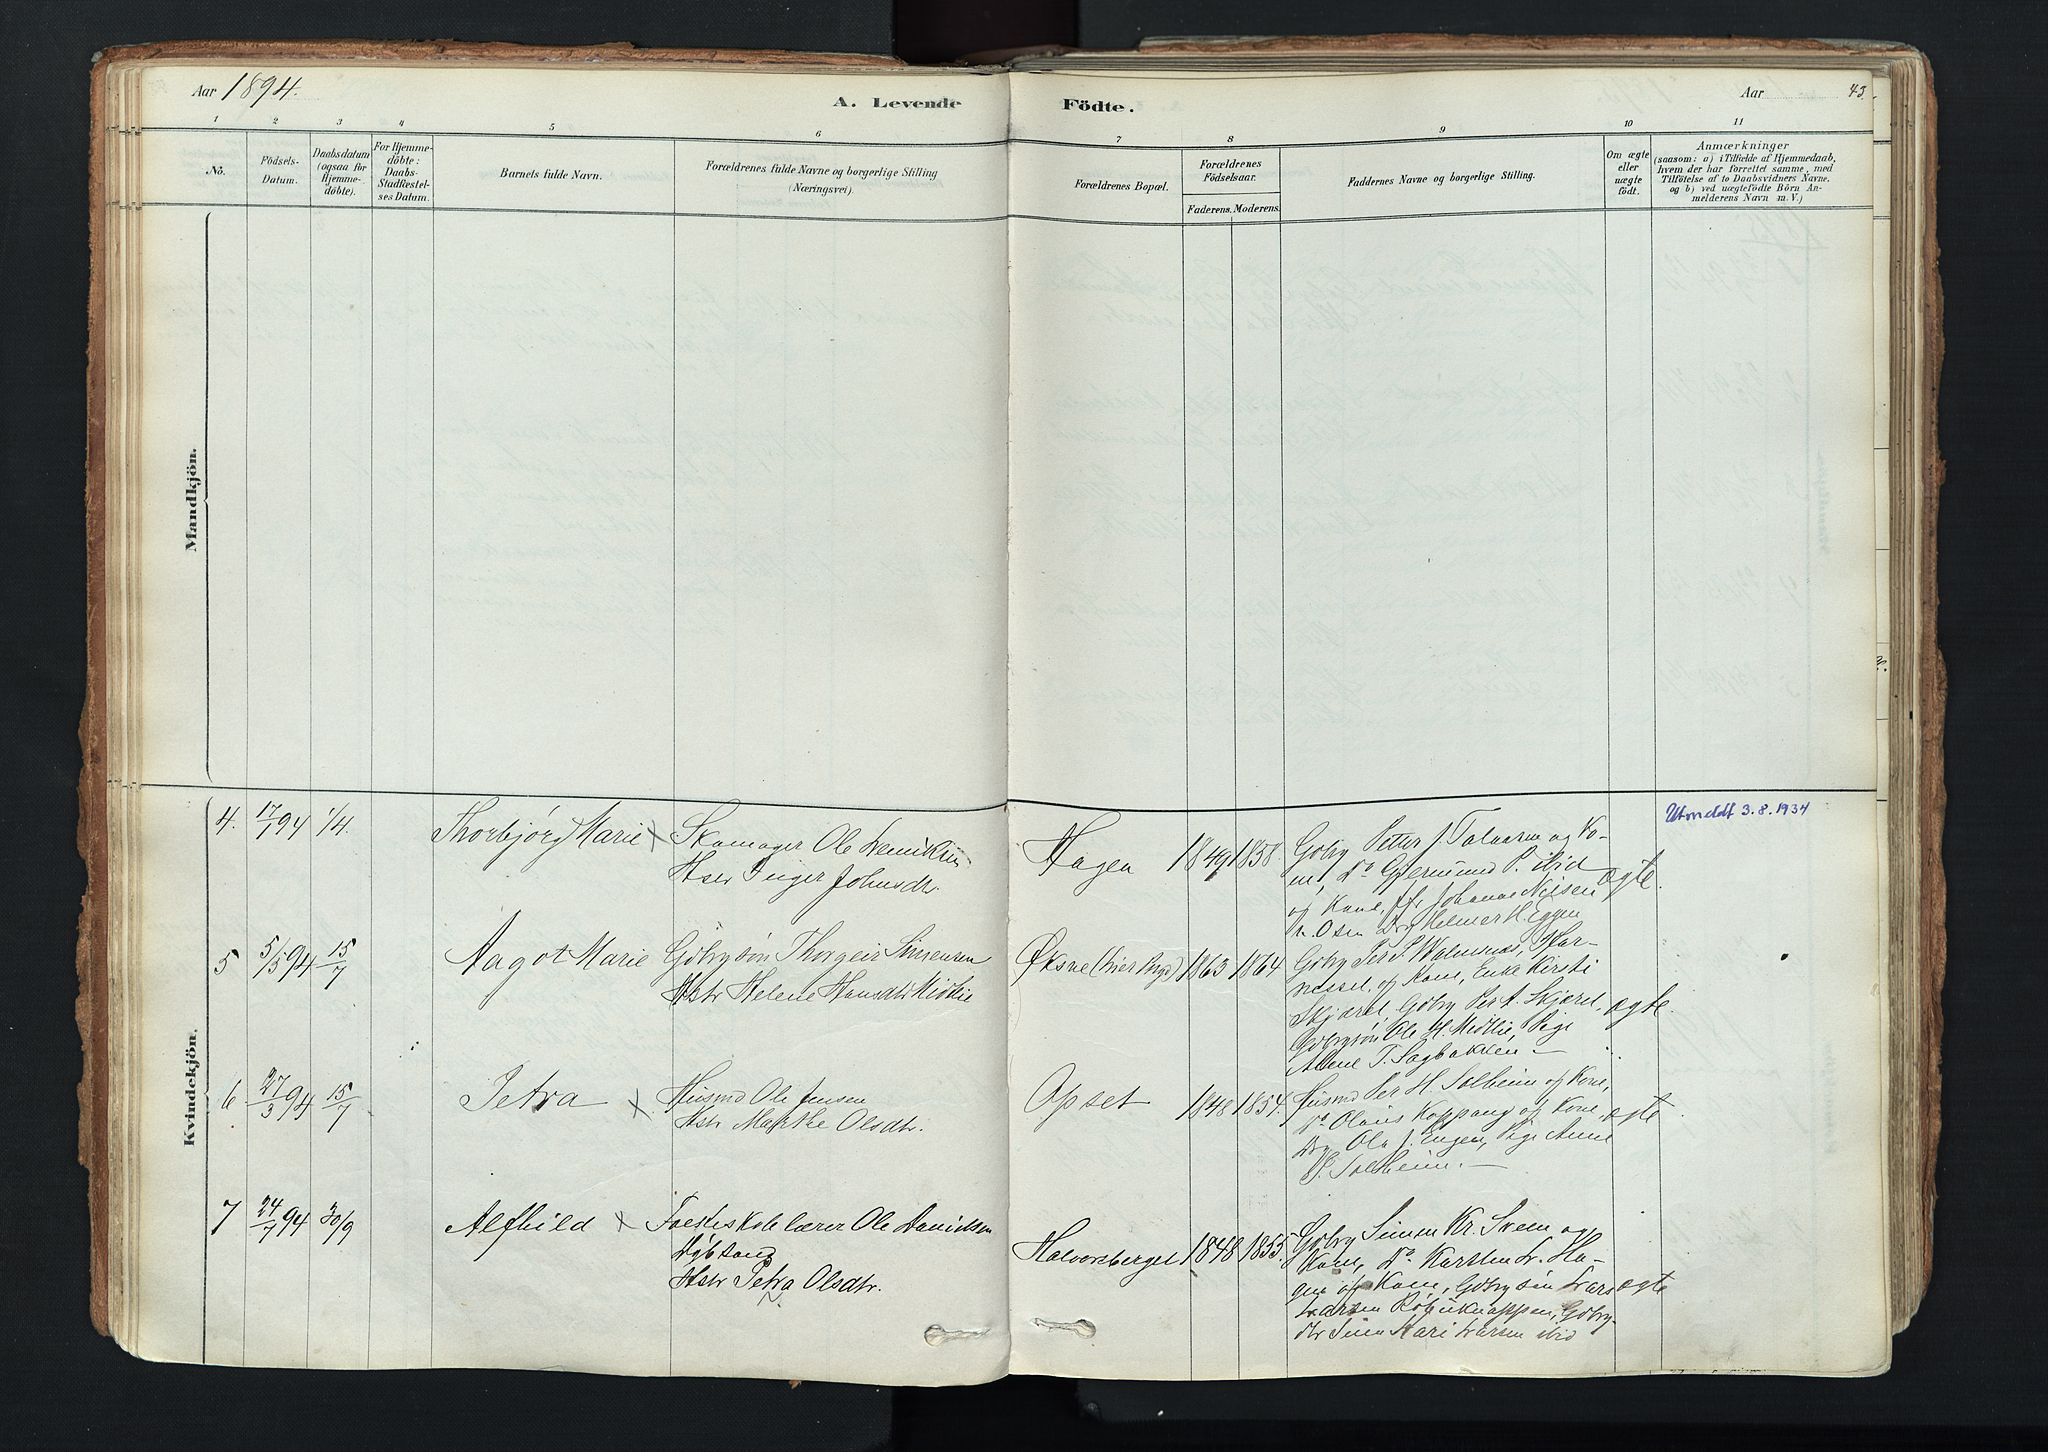 Aar 1894.
A. Levende Födte.
Aar 43.
1 2 3 4 5 6 7 8 9 10 11
No.
Födsels-
Datum.
Daabsdatum
(ogsaa for
Hjemme-
döbte).
For Hjemme-
döbte:
Daabs-
Stadfæstel-
ses Datum.
Barnets fulde Navn.
Forældrenes fulde Navne og borgerlige Stilling
(Næringsvei)
Forældrenes Bopæl.
Forældrenes
Födselsaar.
Faderens. Moderens.
Faddernes Navne og borgerlige Stilling.
Om ægte
eller
uægte
födt.
Anmærkninger
(saasom: a) i Tilfælde af Hjemmedaab,
hvem der har forrettet samme, med
Tilföielse af to Daabsvidners Navne,
og b) ved uægtefödte Börn An-
melderens Navn m. V.)
Mandkjön.
Kvindekjön.
4. 17/1 94 1/4.
Thorbjørg Marie
Skomager Ole
Hstr Inger Johnsdtr.
Hagen
1849 1858.
Gbrg Petter J.
og Kone
ægte.
Utmeldt 3.8.1934
5 5/5 94 15/7
Aagot Marie
Gdbrgsøn Thorgeir Simensen
Hstr Helene Hansdtr Midtlie
Øksne
1863 1864
og Kone, Enke Kirsti
Skjæret, Gdbrg Per A. Skjæret,
Gdbrgsøn Ole H Midtlie, Pige
T. Sagbakken —
ægte.
6 27/3 94 15/7
Petra
Husmd Ole Jensen
Hstr Marthe Olsdtr.
Opset
1848 1854.
Husmd Per H Solheim og Kone,
Do Olaus Koppang og Kone,
Ole J. Engen, Pige Anne
Solheim. —
ægte
7 24/7 94 30/9
Alfhild
Ole Danielsen
Hstr Petra Olsdtr.
Halvorsberget
1848 1855.
Gdbrg Simen Kr. Sveen og
Kone, Do Karsten L. Ha-
gen og Kone, Gdbrgsøn Lars
Larsen Gdbrg-
dtr Kari Larsen ibid
ægte